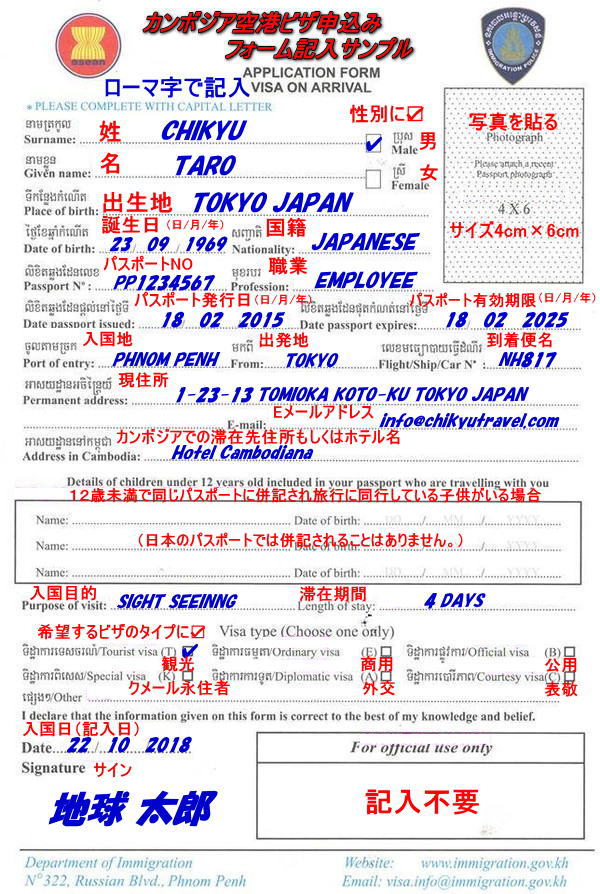 カンボジア空港ビザ申込み
フォーム記入サンプル
asean
IMMIGRATION POLICE
APPLICATION FORM
ローマ字で記入 VISA ON ARRIVAL
* PLEASE COMPLETE WITH CAPITAL LETTER
性別に☑
នាមត្រកូល
Surname: 姓 CHIKYU ប្រុស Male 男
នាមខ្លួន
Given name: 名 TARO ស្រី Female 女
写真を貼る
Photograph
Please attach a recent
Passport photograph
4 X 6
サイズ4cm×6cm
ទីកន្លែងកំណើត
Place of birth: 出生地 TOKYO JAPAN
ថ្ងៃខែឆ្នាំកំណើត 誕生日(日/月/年) សញ្ជាតិ 国籍
Date of birth: 23 / 09 / 1969 Nationality: JAPANESE
លិខិតឆ្លងដែនលេខ パスポートNO មុខរបរ 職業
Passport N°: PP1234567 Profession: EMPLOYEE
លិខិតឆ្លងដែនផ្តល់នៅថ្ងៃទី パスポート発行日(日/月/年) លិខិតឆ្លងដែនផុតកំណត់នៅថ្ងៃទី パスポート有効期限(日/月/年)
Date passport issued: 18 / 02 / 2015 Date passport expires: 18 / 02 / 2025
ចូលតាមច្រក 入国地 មកពី 出発地 លេខមធ្យោបាយធ្វើដំណើរ 到着便名
Port of entry: PHNOM PENH From: TOKYO Flight/Ship/Car N° : NH817
អាសយដ្ឋានអចិន្ត្រៃយ៍ 現住所
Permanent address: 1-23-13 TOMIOKA KOTO-KU TOKYO JAPAN
E-mail: Eメールアドレス info@chikyutravel.com
អាសយដ្ឋាននៅកម្ពុជា カンボジアでの滞在先住所もしくはホテル名
Address in Cambodia: Hotel Cambodiana
Details of children under 12 years old included in your passport who are travelling with you
12歳未満で同じパスポートに併記され旅行に同行している子供がいる場合
Name: Date of birth: DD / MM / YYYY
(日本のパスポートでは併記されることはありません。)
Name: Date of birth: DD / MM / YYYY
Name: Date of birth: DD / MM / YYYY
入国目的 滞在期間
Purpose of visit: SIGHT SEEINNG Length of stay: 4 DAYS
希望するビザのタイプに☑ Visa type (Choose one only)
ទិដ្ឋាការទេសចរណ៍/Tourist visa (T) ទិដ្ឋាការធម្មតា/Ordinary visa (E) ទិដ្ឋាការផ្លូវការ/Official visa (B)
観光 商用 公用
ទិដ្ឋាការពិសេស/Special visa (K) ទិដ្ឋាការការទូត/Diplomatic visa (A) ទិដ្ឋាការបារើភាព/Courtesy visa(C)
クメール永住者 外交 表敬
ផ្សេងៗ/Other
I declare that the information given on this form is correct to the best of my knowledge and belief.
入国日(記入日)
Date 22 / 10 / 2018
Signature サイン
地球 太郎
For official use only
記入不要
Department of Immigration
N°322, Russian Blvd., Phnom Penh
Website: www.immigration.gov.kh
Email: visa.info@immigration.gov.kh